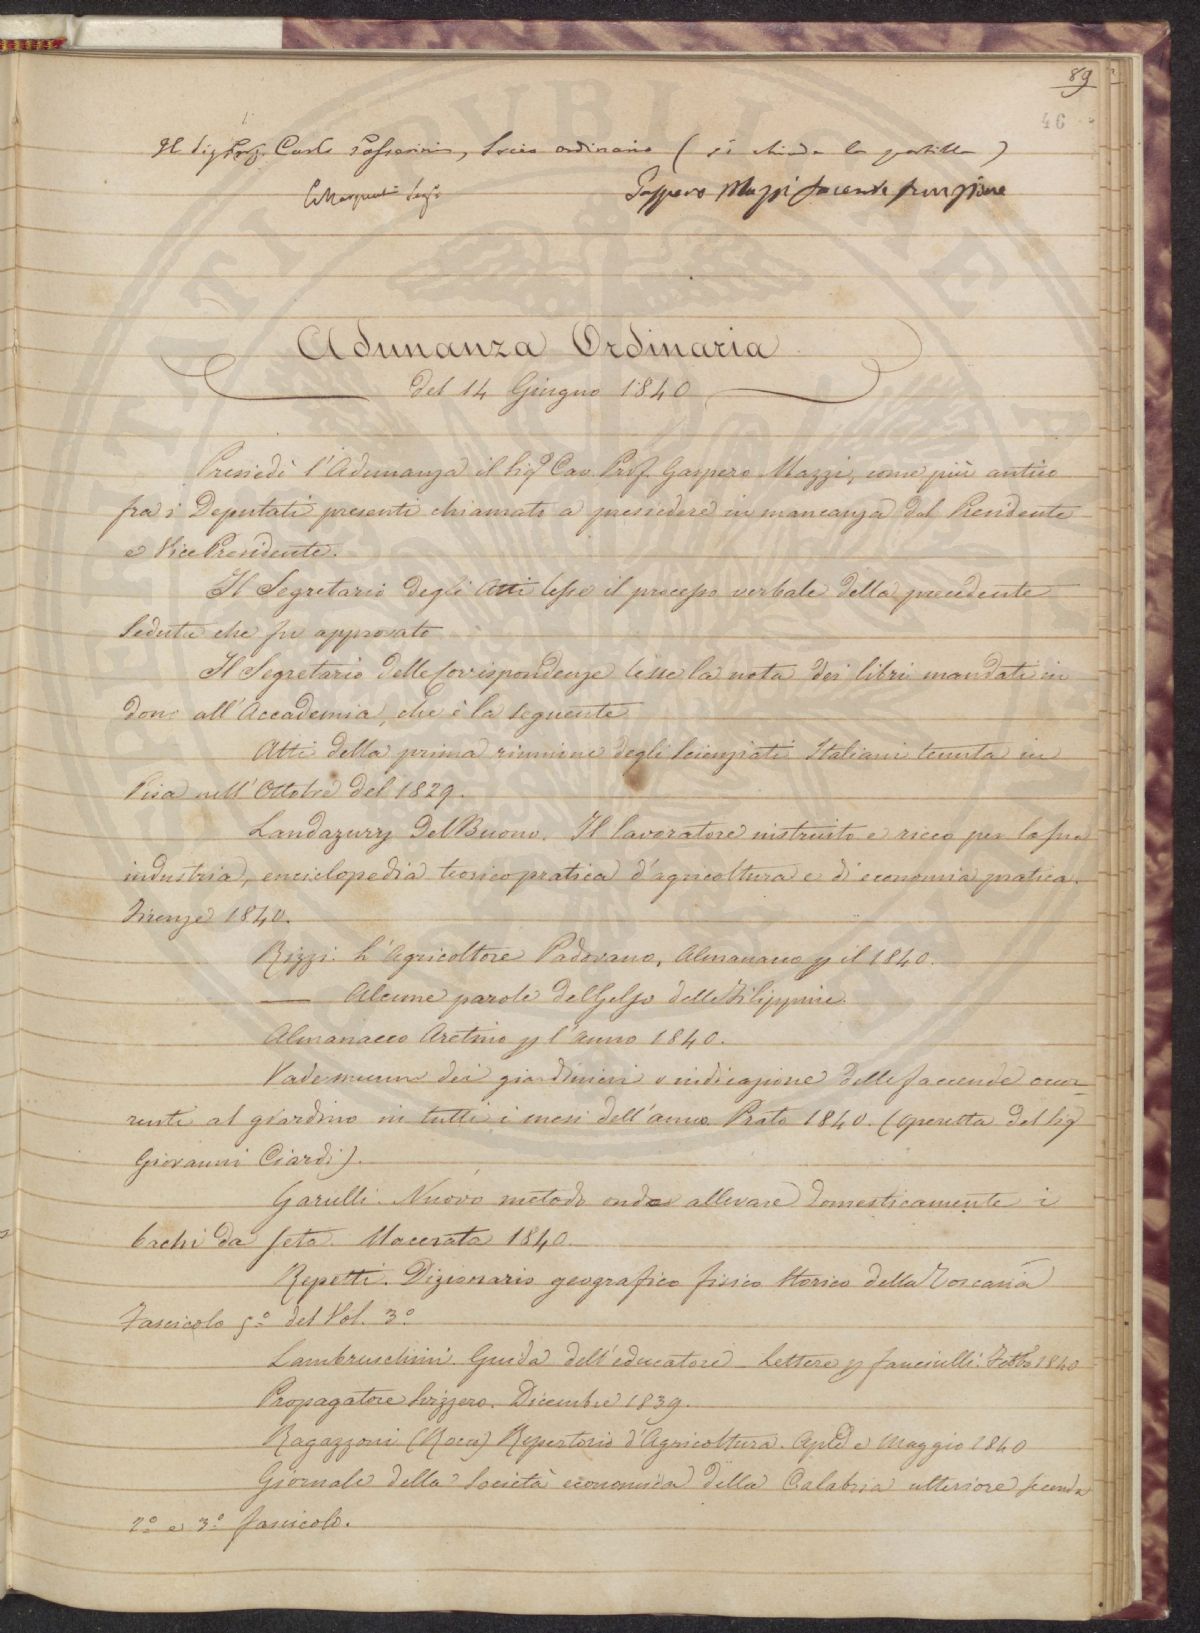 89
46
Il Sig. Prof. Carlo Passerini, Socio ordinario (si chiude la postilla)
Segr.
Gaspero Mazzi facende funzione
Adunanza Ordinaria
del 14 Giugno 1840
Presiedè l'Adunanza il Sigr Cav. Prof. Gaspero Mazzi, come più antico
fra i Deputati presenti chiamati a presiedere in mancanza del Presidente
e Vice Presidente.
Il Segretario degli Atti lesse il processo verbale della precedente
Seduta che fu approvato
Il Segretario delle Corrispondenze lesse la nota dei libri mandati in
dono all'Accademia, che è la seguente
Atti della prima riunione degli Scienziati Italiani tenuta in
Pisa nell'Ottobre del 1829.
Landazurry Del Buono. Il lavoratore instruito e ricco per la sua
industria, enciclopedia teorico pratica d'agricoltura e di economia pratica.
Firenze 1840.
Rizzi. L'Agricoltore Padovano, Almanacco p il 1840.
— Alcune parole del Gelso delle Filippine.
Almanacco Aretino p l'anno 1840.
Vademecum dei giardinieri o indicazione delle faccende occor-
renti al giardino in tutti i mesi dell'anno. Prato 1840. (Operetta del Sigr
Giovanni Ciardi).
Garulli. Nuovo metodo onde allevare domesticamente i
bachi da seta. Macerata 1840.
Repetti. Dizionario geografico fisico Storico della Toscana
Fascicolo 5º del Vol. 3º
Lambruschini. Guida dell'educatore – Lettere p fanciulli. Febbo 1840
Propagatore Svizzero. Dicembre 1839.
Ragazzoni (Rocco) Repertorio d'Agricoltura. Aple e Maggio 1840
Giornale della Società economica della Calabria ulteriore seconda
2º e 3º fascicolo.